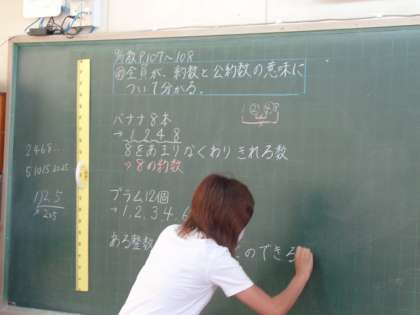 算数P.107〜108
め全員が、約数と公約数の意味に
ついて分かる。
バナナ8本
→1 2 4 8
8をあまりなくわりきれる数
→8の約数
プラム12個
→1,2,3,4,6
ある整数
のできる
2 4 6 8 …
5 10 15 20 25